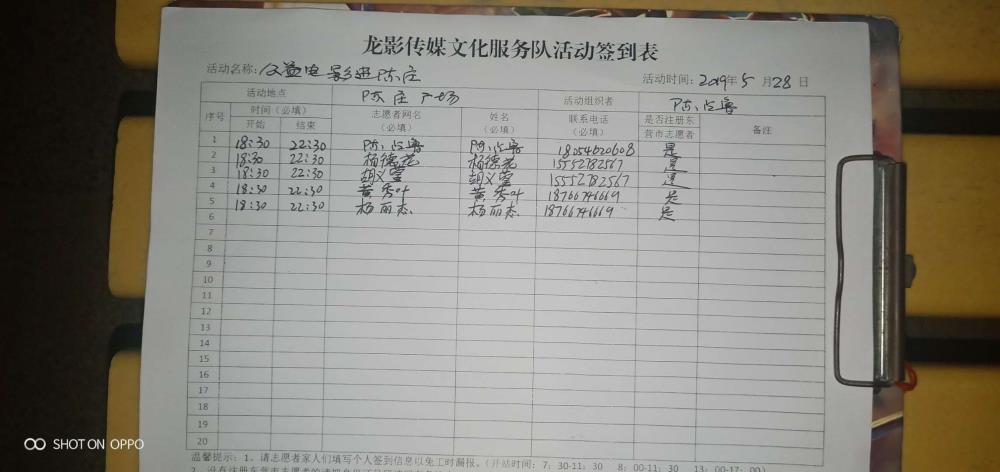 龙影传媒文化服务队活动签到表
活动名称:公益电影进陈庄 活动时间: 2019年 5 月 28 日
活动地点 陈庄广场 活动组织者 陈占鲁
序号 时间（必填） 志愿者网名 姓名 联系电话 是否注册东 备注
开始 结束 （必填） （必填） （必填） 营市志愿者
1 18:30 22:30 陈占鲁 陈占鲁 18054620608 是
2 18:30 22:30 杨德花 杨德花 15552782567 是
3 18:30 22:30 胡义莹 胡义莹 15552782567 是
4 18:30 22:30 黄秀叶 黄秀叶 18766746669 是
5 18:30 22:30 杨丽志 杨丽志 18766746669 是
6
7
8
9
10
11
12
13
14
15
16
17
18
19
20
温馨提示：1、请志愿者家人们填写个人签到信息以免工时漏报。（开始时间：7：30-11：30 8：00-11：30 13：00-17：00）
SHOT ON OPPO